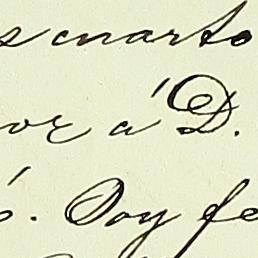 s cuarto
or á D.
ó. Doy fe